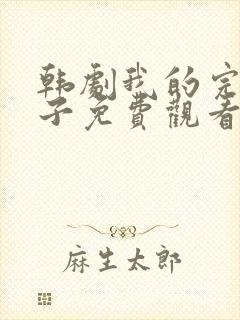 韩劇我的完
子免費觀看
麻生太郎